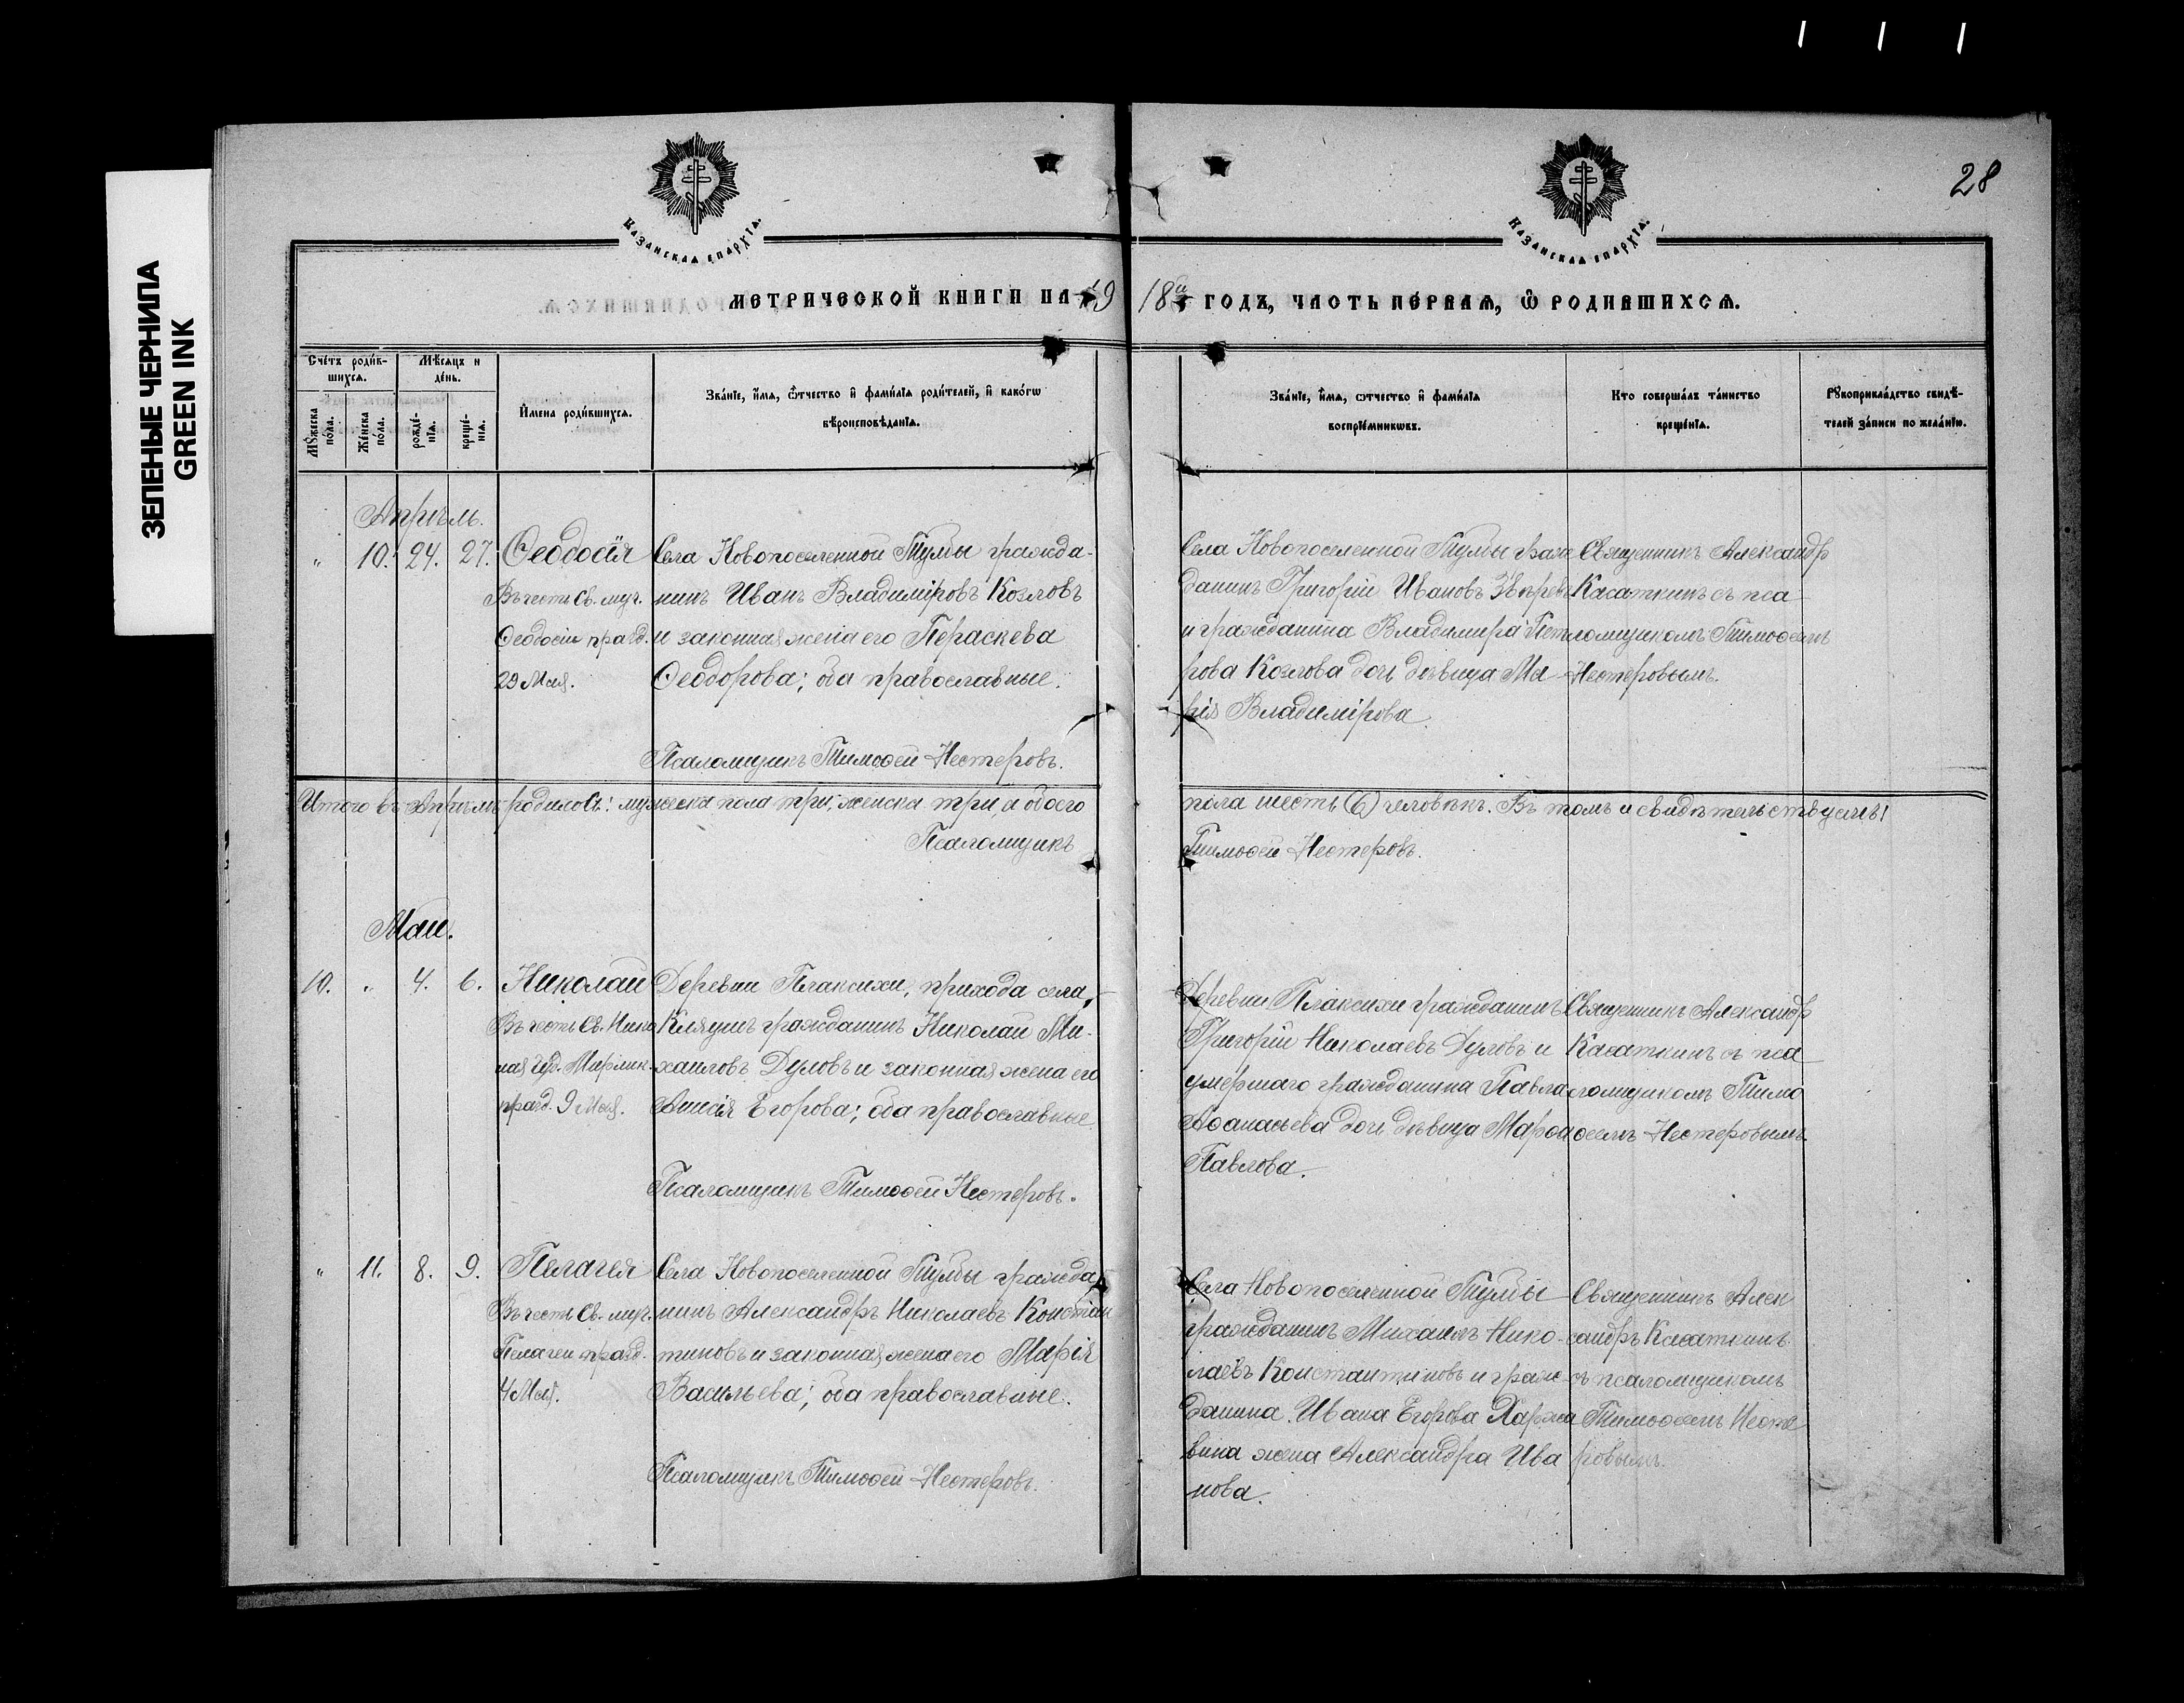 28
ЗЕЛЕНЫЕ ЧЕРНИЛА
GREEN INK
Казанская епархїя.
Казанская епархїя.
МЕТРИЧЕСКОЙ КНИГИ НА 1918й ГОДЪ, ЧАСТЬ ПЕРВАЯ, Ѡ РОДИВШИХСЯ.
Сче́тъ роди́вшихся.
Мѣ́сяцъ и де́нь.
Мꙋ́жеска по́ла.
Же́нска по́ла.
рожде́нїя.
креще́нїя.
И҆мена роди́вшихся.
Зва́нїе, и҆́мя, ѻ҆́тчество и҆ фами́лїя роди́телей, и҆ како́гѡ
вѣроисповѣ́данїя.
Зва́нїе, и҆́мя, ѻ҆́тчество и҆ фами́лїя
воспрїе́мникѡвъ.
Кто соверша́лъ та́инство
креще́нїя.
Рꙋкоприкла́дство свидѣ́-
телей за́писи по жела́нїю.
Апрѣль.
„ 10. 24. 27. Ѳеодосія
Въ честь Св. муч.
Ѳеодосіи празд.
29 Мая.
Села Новопоселенной Тумбы гражда-
нинъ Иванъ Владиміровъ Козловъ
и законная жена его Параскева
Ѳеодорова; оба православные.
Псаломщикъ Тимоѳей Нестеровъ.
Села Новопоселенной Тумбы граж
данинъ Григорій Ивановъ Звѣревъ
и гражданина Владимира Пет
рова Козлова дочь дѣвица Ма-
рія Владимірова.
Священникъ Александр
Касаткинъ съ пса
ломщикомъ Тимоѳеемъ
Нестеровымъ.
Итого въ Апрѣлѣ родилось: мужеска пола три, женска три, а обоего
пола шесть (6) человѣкъ. Въ томъ и свидѣтельствуемъ:
Псаломщикъ
Тимоѳей Нестеровъ.
Май.
10. „ 4. 6. Николай
Въ честь Св. Нико
лая Чуд. Мирлик.
празд. 9 Мая.
Деревни Плаксихи, прихода села
Кляушъ гражданинъ Николай Ми-
хаиловъ Дуловъ и законная жена его
Анисія Егорова; оба православные.
Псаломщикъ Тимоѳей Нестеровъ.
Деревни Плаксихи гражданинъ
Григорій Николаевъ Дуловъ и
умершаго гражданина Павла
Аѳанасьева дочь дѣвица Марѳа
Павлова.
Священникъ Александр
Касаткинъ съ пса
ломщикомъ Тимо
ѳеемъ Нестеровымъ.
„ 11. 8. 9. Пелагея
Въ честь Св. муч.
Пелагеи празд.
4 Мая.
Села Новопоселенной Тумбы гражда
нинъ Александръ Николаевъ Констан
тиновъ и законная жена его Марія
Васильева; оба православные.
Псаломщикъ Тимоѳей Нестеровъ.
Села Новопоселенной Тумбы
гражданинъ Михаилъ Нико-
лаевъ Константиновъ и граж-
данина Ивана Егорова
жена Александра Ива
нова.
Священникъ Алек
сандръ Касаткинъ
съ псаломщикомъ
Тимоѳеемъ Несте
ровымъ.